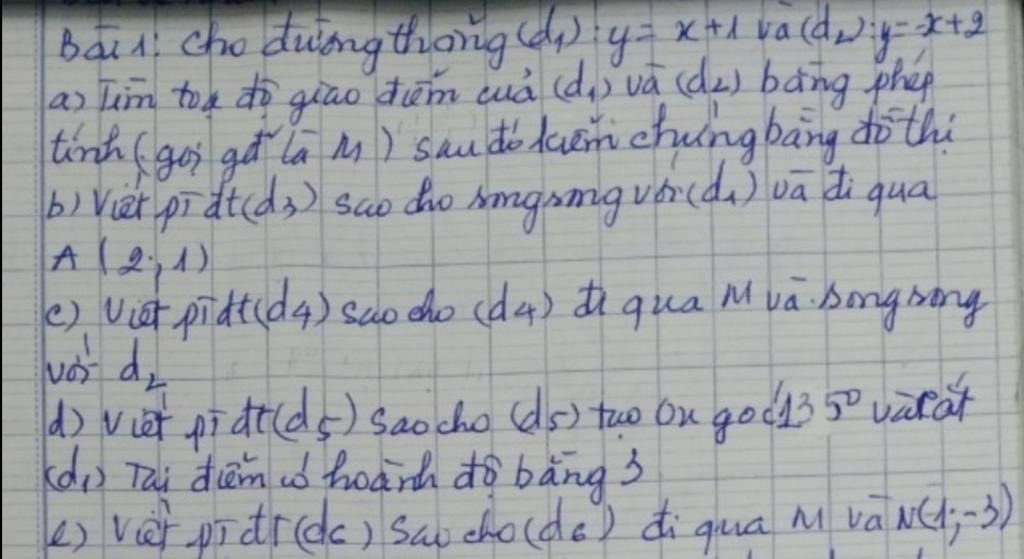 Bài 1: Cho đường thẳng (d₁): y = x+1 và (d₂): y=-x+2
a) Tìm toạ độ giao điểm của (d₁) và (d₂) bằng phép
tính (gọi gđ là M) sau đó kiểm chứng bằng đồ thị
b) Viết pT đt(d₃) sao cho song song với (d₁) và đi qua
A (2; 1)
c) Viết pT đt(d₄) sao cho (d₄) đi qua M và song song
với d₂
d) Viết pT đt(d₅) sao cho (d₅) tạo Ox góc 135⁰ và cắt
(d₁) Tại điểm có hoành độ bằng 3
e) Viết pT đt(d₆) sao cho (d₆) đi qua M và N(1;-3)